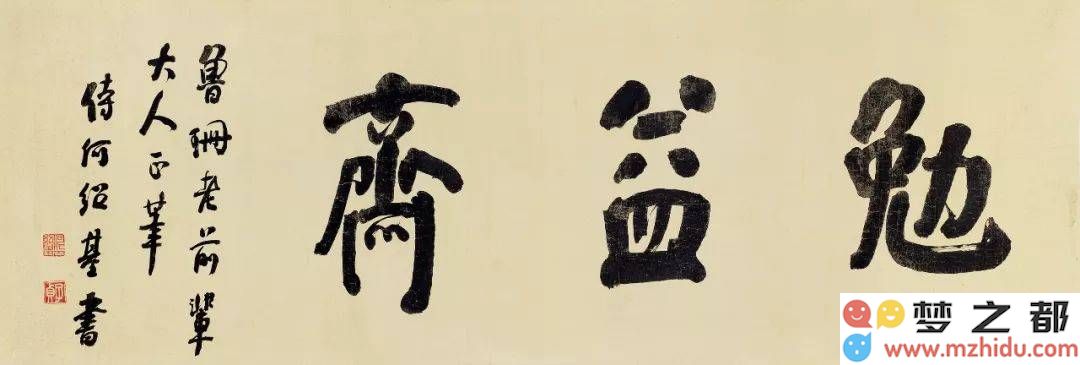 勉益齋
魯珊老前輩
大人正筆
侍何紹基書
子貞
梦之都
www.mzhidu.com